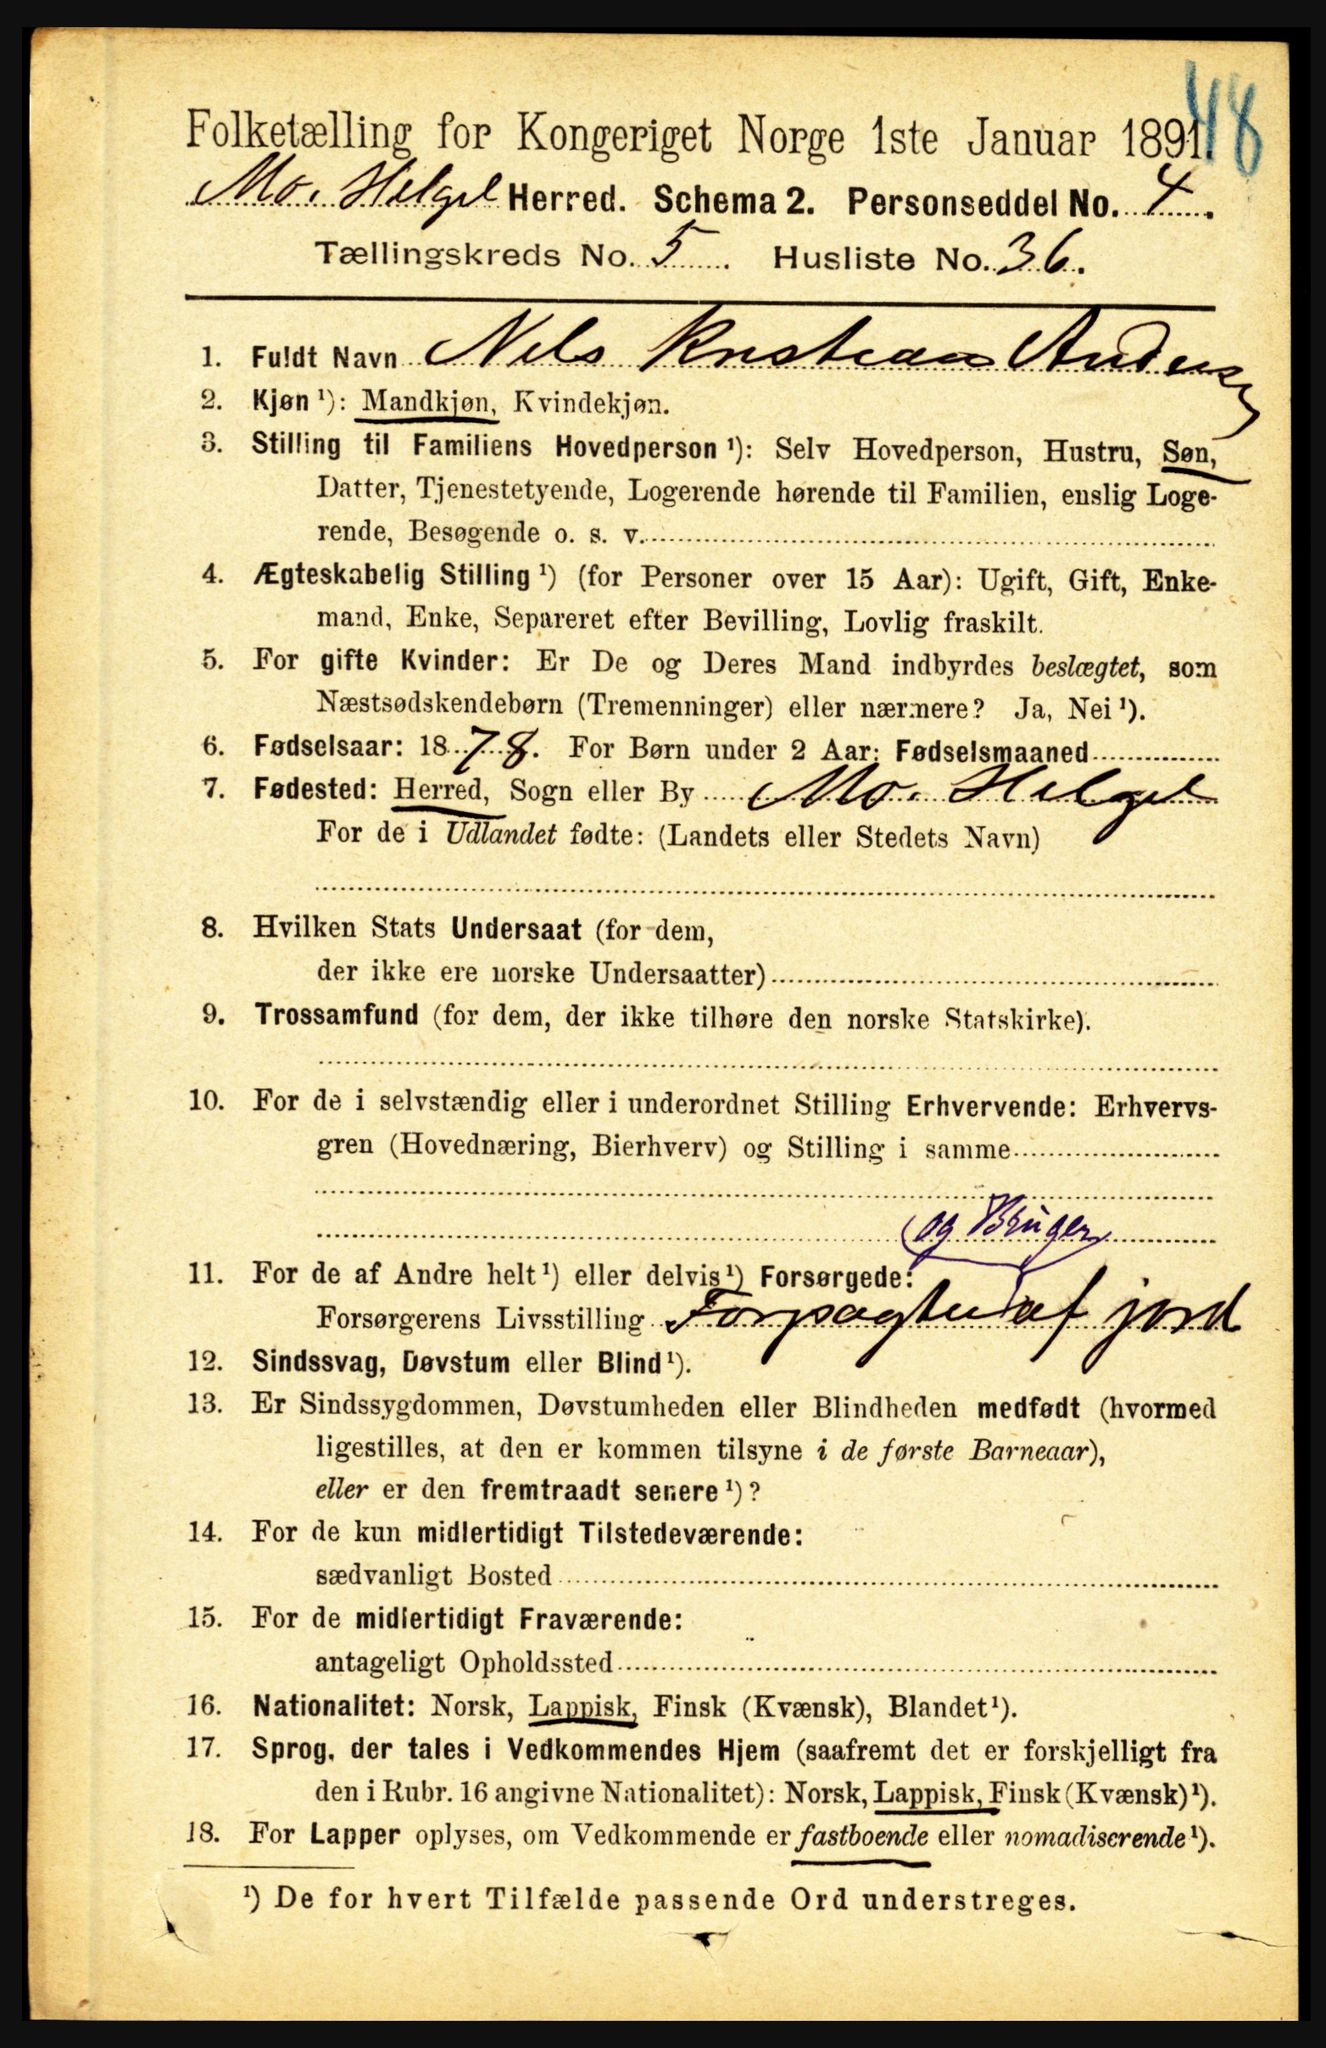 48
Folketælling for Kongeriget Norge 1ste Januar 1891.
Mo. Helgel Herred. Schema 2. Personseddel No. 4.
Tællingskreds No. 5. Husliste No. 36.
1. Fuldt Navn Nels Kristian Andersen
2. Kjøn ¹): Mandkjøn, Kvindekjøn.
3. Stilling til Familiens Hovedperson ¹): Selv Hovedperson, Hustru, Søn,
Datter, Tjenestetyende, Logerende hørende til Familien, enslig Loge-
rende, Besøgende o. s. v.
4. Ægteskabelig Stilling ¹) (for Personer over 15 Aar): Ugift, Gift, Enke-
mand, Enke, Separeret efter Bevilling, Lovlig fraskilt.
5. For gifte Kvinder: Er De og Deres Mand indbyrdes beslægtet, som
Næstsødskendebørn (Tremenninger) eller nærmere? Ja, Nei ¹).
6. Fødselsaar: 1878. For Børn under 2 Aar: Fødselsmaaned
7. Fødested: Herred, Sogn eller By Mo. Helgel
For de i Udlandet fødte: (Landets eller Stedets Navn)
8. Hvilken Stats Undersaat (for dem,
der ikke ere norske Undersaatter)
9. Trossamfund (for dem, der ikke tilhøre den norske Statskirke).
10. For de i selvstændig eller i underordnet Stilling Erhvervende: Erhvervs-
gren (Hovednæring, Bierhverv) og Stilling i samme
og Bruger
11. For de af Andre helt ¹) eller delvis ¹) Forsørgede:
Forsørgerens Livsstilling Forpagter af jord
12. Sindssvag, Døvstum eller Blind ¹).
13. Er Sindssygdommen, Døvstumheden eller Blindheden medfødt (hvormed
ligestilles, at den er kommen tilsyne i de første Barneaar),
eller er den fremtraadt senere ¹)?
14. For de kun midlertidigt Tilstedeværende:
sædvanligt Bosted
15. For de midlertidigt Fraværende:
antageligt Opholdssted
16. Nationalitet: Norsk, Lappisk, Finsk (Kvænsk), Blandet ¹).
17. Sprog, der tales i Vedkommendes Hjem (saafremt det er forskjelligt fra
den i Rubr. 16 angivne Nationalitet): Norsk, Lappisk, Finsk (Kvænsk) ¹).
18. For Lapper oplyses, om Vedkommende er fastboende eller nomadiserende ¹).
¹) De for hvert Tilfælde passende Ord understreges.